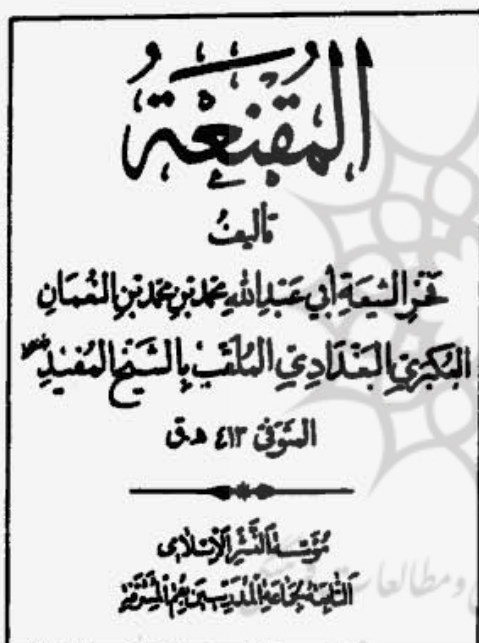 المُقنِعَة
تأليفُ
فخرِ الشيعَةِ أبي عَبدِاللهِ محمّد بنِ محمّد بنِ النُعمَانِ
العُكبَريِّ البَغدَاديِّ المُلَقّبِ بِالشَيخِ المُفيدِ
المتوَفّى ٤١٣ ه‍.ق
مُؤَسَّسَةُ النَّشرِ الإسلامي
التَّابِعَةُ لِجَمَاعَةِ المُدَرِّسِينَ بِقُمِ المُشَرَّفَةِ
ومطالعات